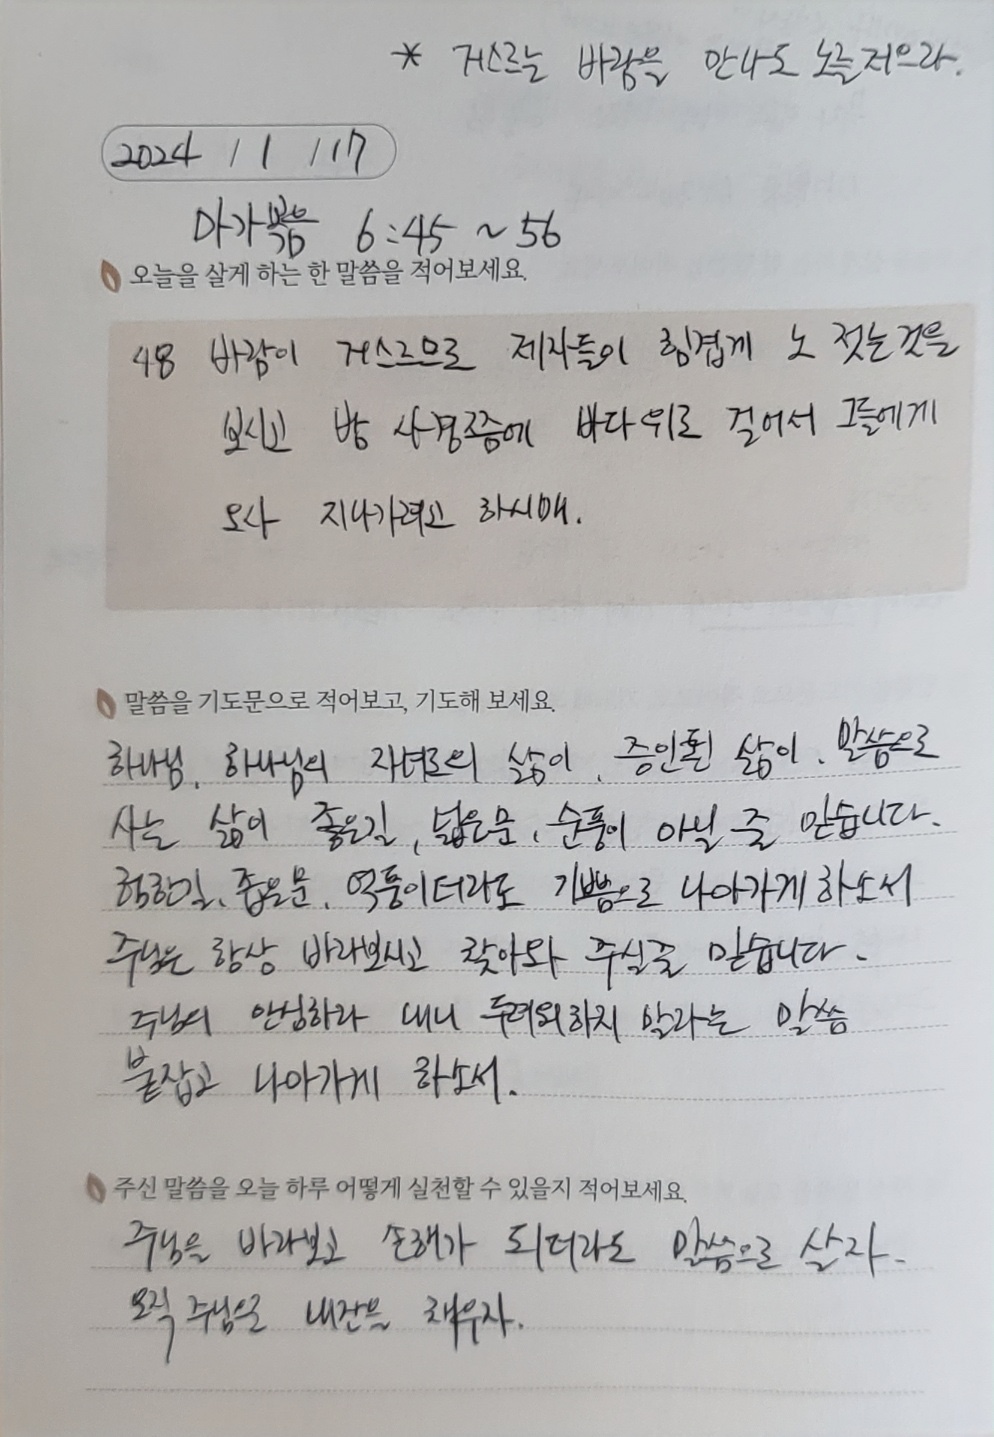 * 거스르는 바람을 만나도 노를 저으라.
2024 / 1 / 17
마가복음 6:45 ~ 56
오늘을 살게 하는 한 말씀을 적어보세요.
48 바람이 거스르므로 제자들이 힘겹게 노 젓는것을
보시고 밤 사경쯤에 바다위로 걸어서 그들에게
오사 지나가려고 하시매.
말씀을 기도문으로 적어보고, 기도해 보세요.
하나님, 하나님의 자녀로의 삶이, 증인된 삶이, 말씀으로
사는 삶이 좋은길, 넓은문, 순풍이 아닐 줄 믿습니다.
험한길, 좁은문, 역풍이더라도 기쁨으로 나아가게 하소서
주님은 항상 바라보시고 찾아와 주실줄 믿습니다.
주님의 안심하라 내니 두려워하지 말라는 말씀
붙잡고 나아가게 하소서.
주신 말씀을 오늘 하루 어떻게 실천할 수 있을지 적어보세요.
주님을 바라보고 손해가 되더라도 말씀으로 살자.
오직 주님으로 내잔을 채우자.